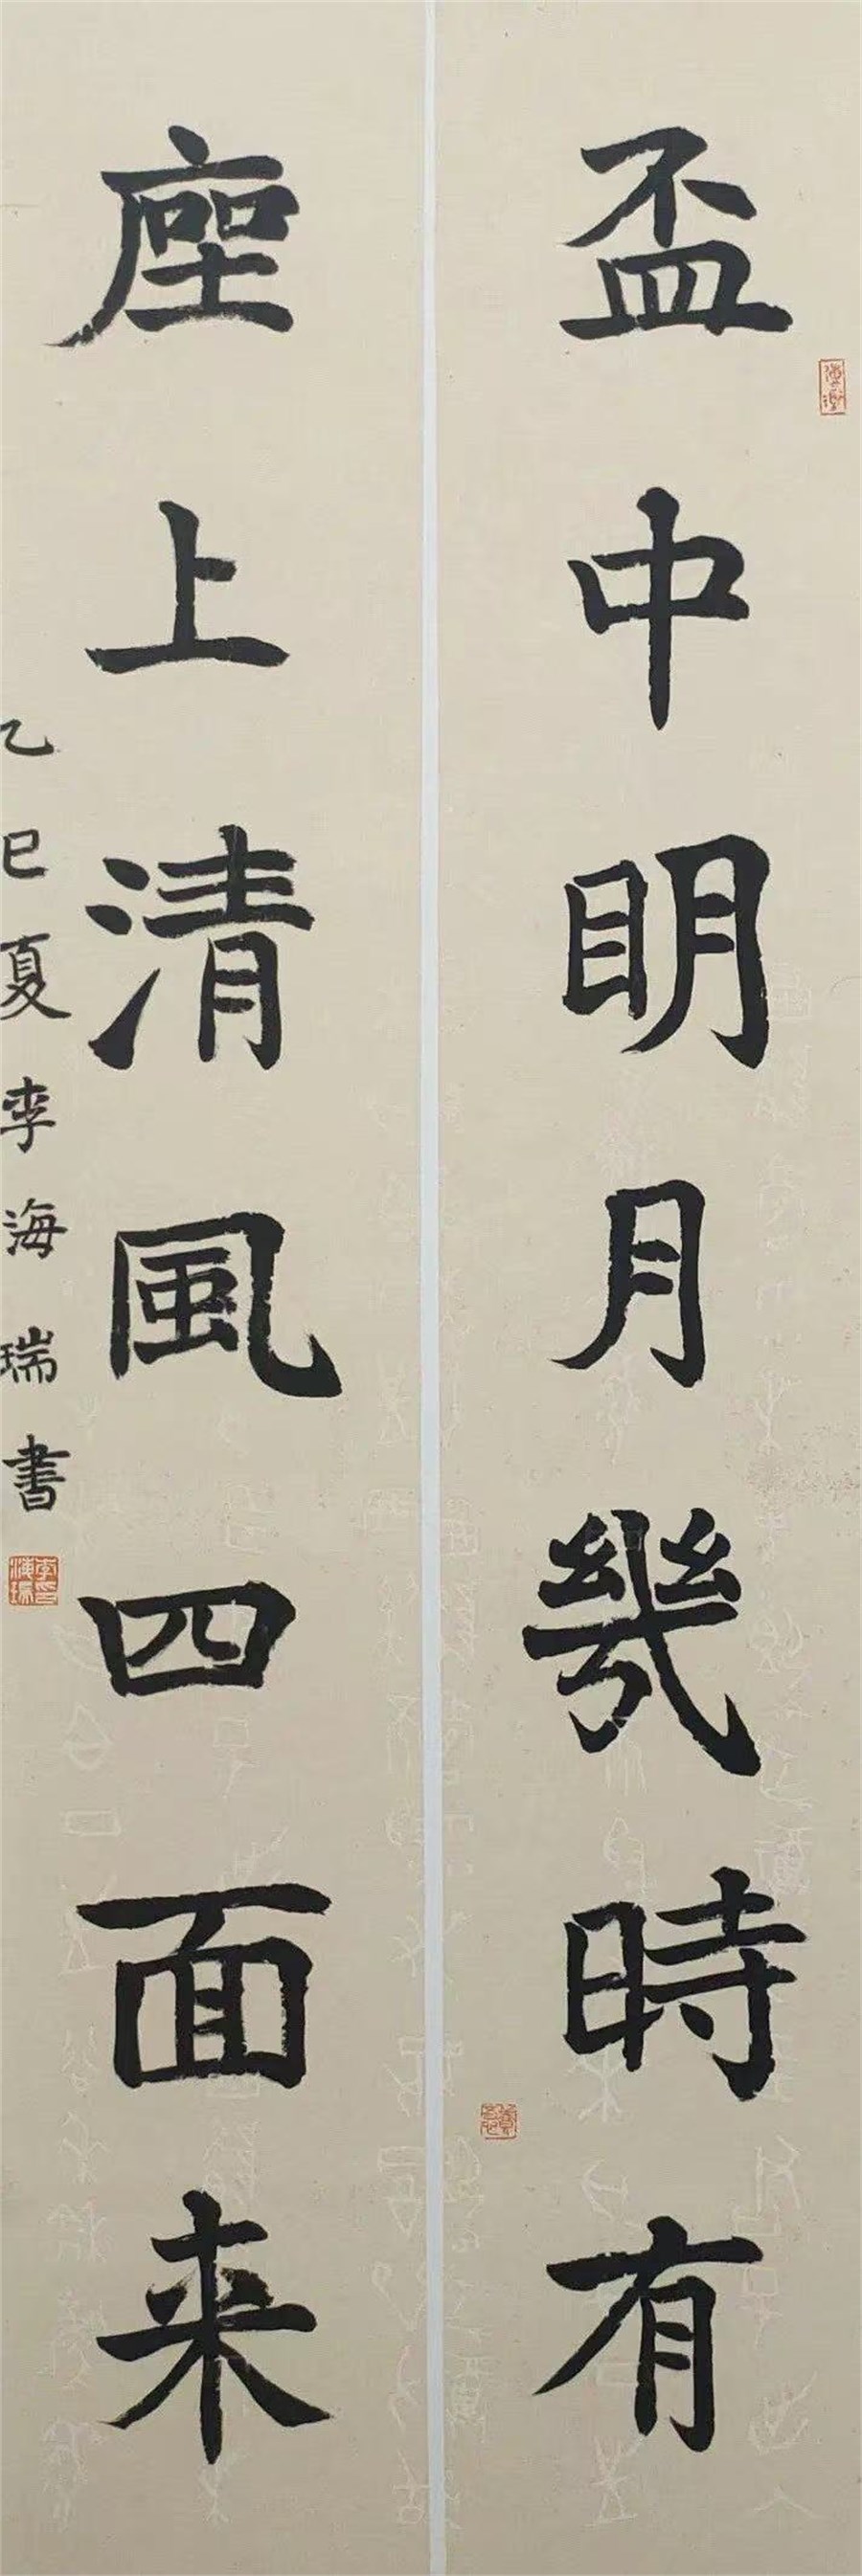 盃中明月幾時有
座上清風四面来
乙巳夏李海瑞書
李海瑞印